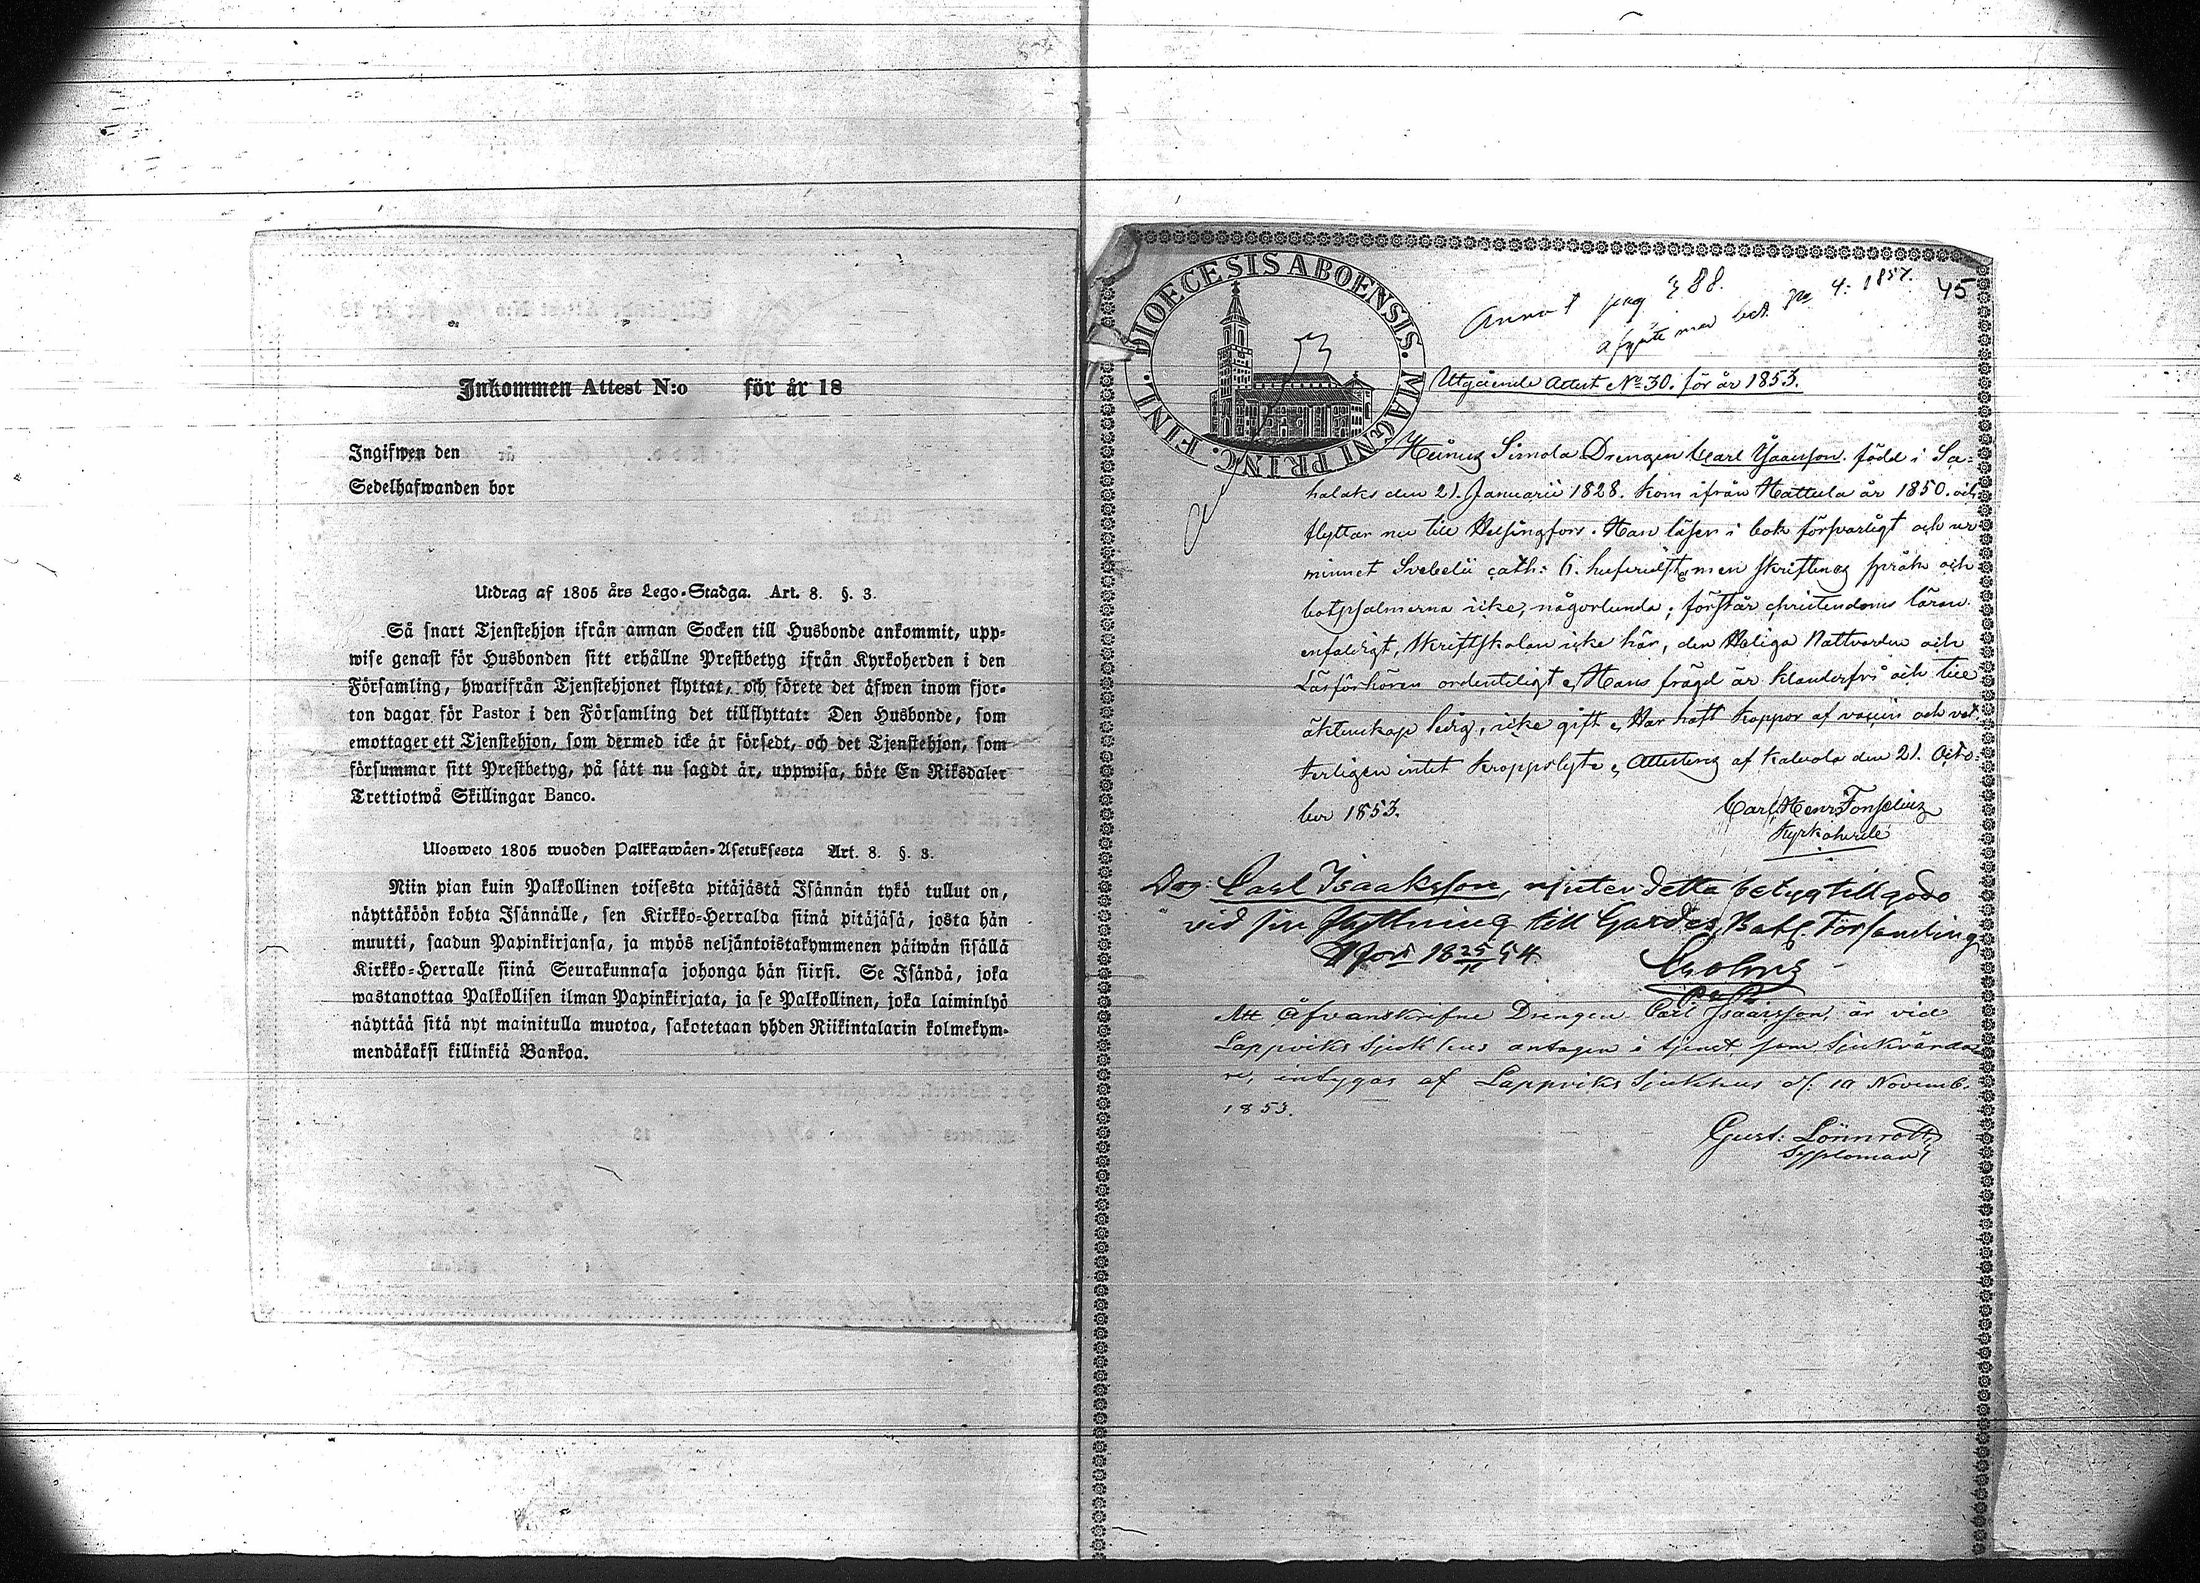 Inkommen Attest N:o för år 18
Ingifwen den
Sedelhafwanden bor
Utdrag af 1805 års Lego-Stadga. Art. 8. §. 3.
Så snart Tjenstehjon ifrån annan Socken till Husbonde ankommit, upp-
wise genast för Husbonden sitt erhållne Prestbetyg ifrån Kyrkoherden i den
Församling, hwarifrån Tjenstehjonet flyttat, och förete det äfwen inom fjor-
ton dagar för Pastor i den Församling det tillflyttat: Den Husbonde, som
emottager ett Tjenstehjon, som dermed icke är försedt, och det Tjenstehjon, som
försummar sitt Prestbetyg, på sätt nu sagdt är, uppwisa, böte En Riksdaler
Trettiotwå Skillingar Banco.
Ulosweto 1805 wuoden Palkkawäen-Asetuksesta Art. 8. §. 3.
Niin pian kuin Palkollinen toisesta pitäjästä Isännän tykö tullut on,
näyttäköön kohta Isännälle, sen Kirkko-Herralda siinä pitäjäsä, josta hän
muutti, saadun Papinkirjansa, ja myös neljäntoistakymmenen päiwän sisällä
Kirkko-Herralle siinä Seurakunnasa johonga hän siirsi. Se Isändä, joka
wastanottaa Palkollisen ilman Papinkirjata, ja se Palkollinen, joka laiminlyö
näyttää sitä nyt mainitulla muotoa, sakotetaan yhden Riikintalarin kolmekym-
mendäkaksi killinkiä Bankoa.
DIOECESIS ABOENSIS. MAGNI PRINC. FINL.
45
Annot pag 388.
med bet. No 4: 1857.
Utgående Attest No 30. för år 1853.
Simola Drengen Carl Isaacsson. född i Sa-
halaks den 21. Januarii 1828. kom ifrån Hattula år 1850. och
flyttar nu till Helsingfors. Han läser i bok försvarligt och ur
minnet Svebelii cath: men skriftenes språk och
botpsalmerna icke, någorlunda; förstår christendoms läran
enfaldigt, Skriftskolan icke här, den Heliga Nattvarden och
Läsförhören ordenteligt. Hans frägd är klanderfri och till
äktenskap ledig, icke gift. Har haft koppor af vaccin och vet-
terligen intet kroppslyte. Attesteras af Kalvola den 21. Octo-
ber 1853.
Carl Henr Fonselius
Kyrkoherde
Drg: Carl Isaaksson, njuter detta betyg till godo
vid sin flyttning till Gardes Bat. Församling
H:fors 18 25/11 54
Att Ofvanskrifne Drengen Carl Isaacsson, är vid
Lappviks Sjukhus antagen i tjenst som Sjukvårda-
re, intygas af Lappviks Sjukhus d. 10 Novemb.
1853.
Gust: Lönnrott
Syssloman